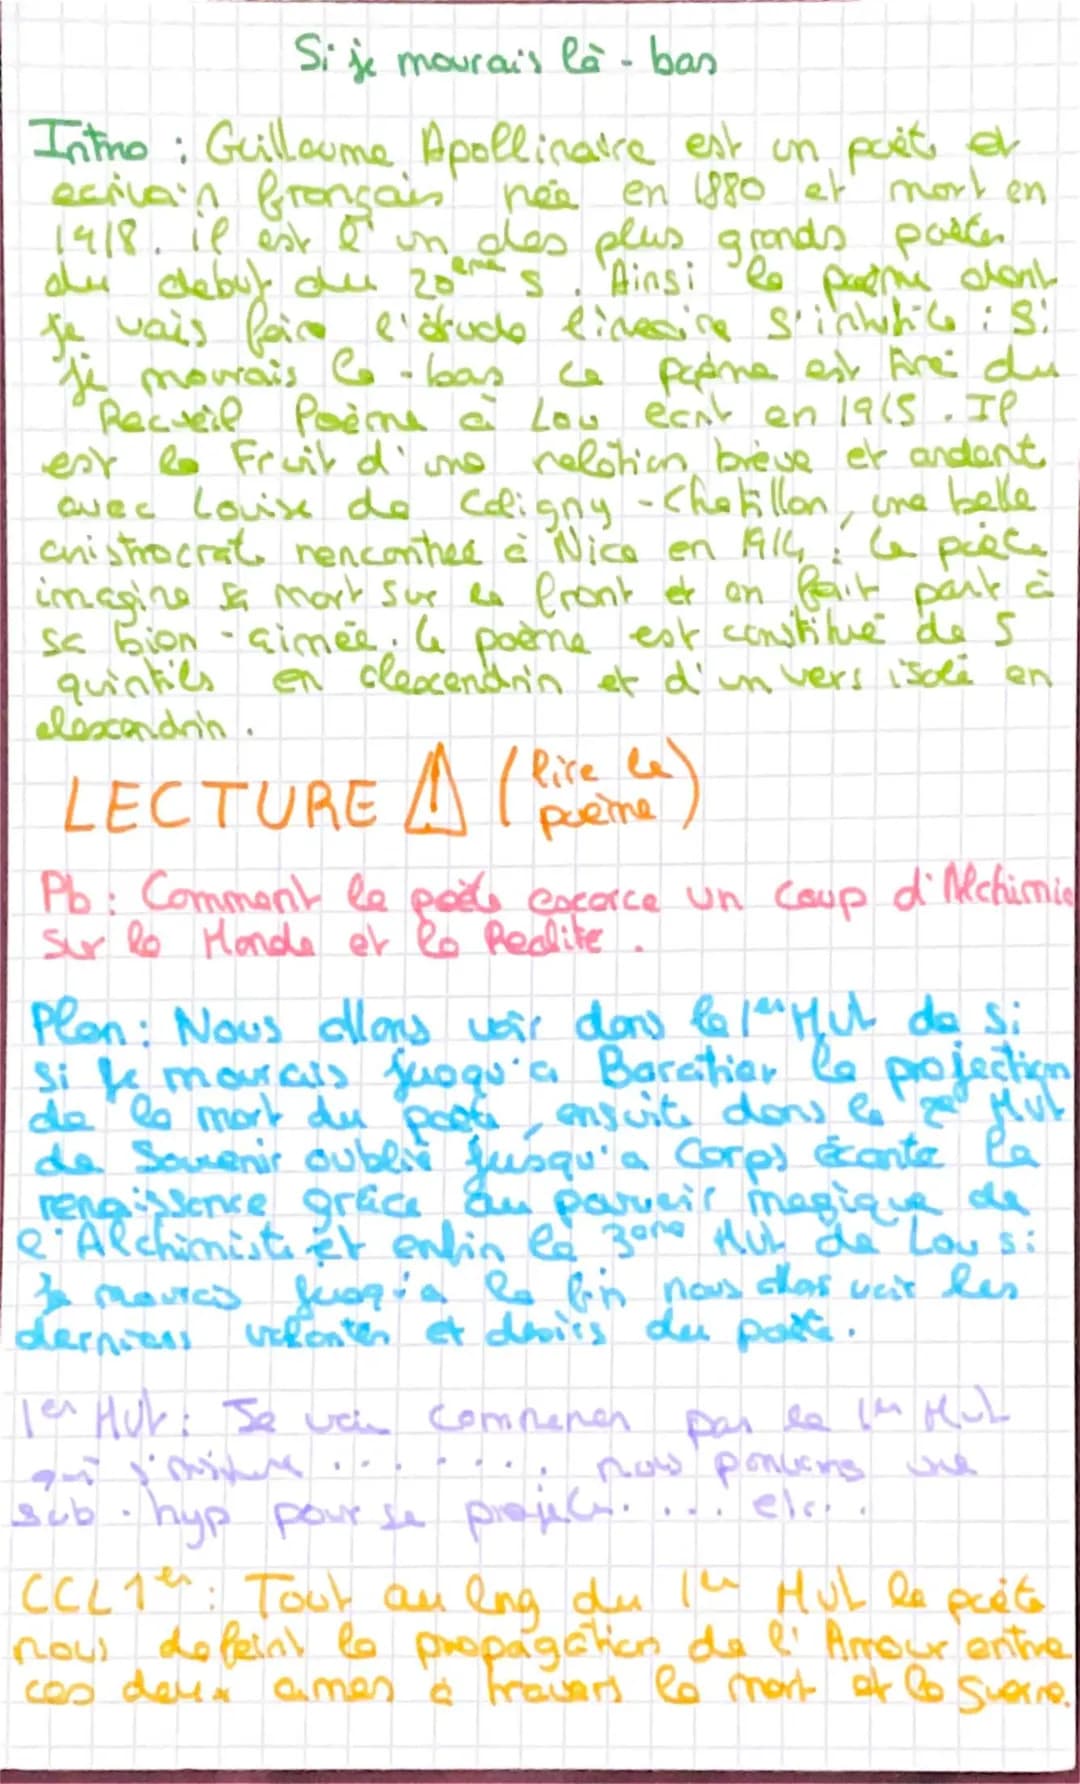 Si je mourais là-bas
Intro : Guillaume Apollinaire est un poète et
ecrivain français née en 1880 et mort en
1918. il est l'un des plus grands poètes
du debut du 20ème s. Ainsi le poème dont
je vais faire l'étude lineaire s'intitule : Si
je mourais la-bas ce poème est tiré du
Recueil Poème à Lou ecrit en 1915. Il
est le Fruit d'une relation brève et ardent
avec Louise de Coligny-Chatillon, une belle
aristocrate rencontrée à Nice en 1914, : le poète
imagine sa mort sur le front et en fait part à
sa bien-aimée. le poème est constitué de 5
quintils en alexandrin et d'un vers isolé en
alexandrin.
LECTURE ⚠ (lire le
poème)
Pb : Comment le poète excerce un Coup d'Alchimie
sur le Monde et la Realite.
Plan : Nous allons voir dans le 1er Mvt de si
si je mourais jusqu'a Baratier la projection
de la mort du poète, ensuite dans le 2e Mvt
de Souvenir oublié jusqu'a Corps écarte la
renaissance grâce au pouvoir magique de
l'Alchimiste et enfin le 3ème Mvt de Lou si
je mourais jusqu'a la fin nous allons voir les
dernieres volontés et desirs du poète.
1er Mvt : Je vais commencer par le 1er Mvt
qui s'intitule ........ nous pouvons une
sub-hyp pour se projeter..... etc..
CCL 1er : Tout au long du 1er Mvt le poète
nous defeint la propagation de l'Amour entre
ces deux âmes à travers la mort et la Guerre.